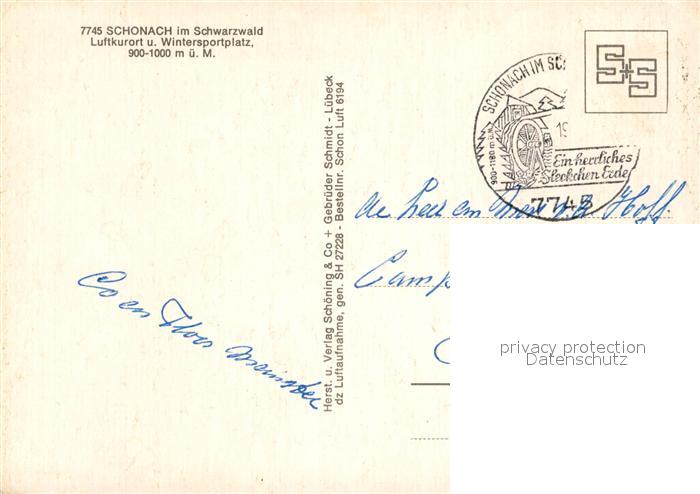 7745 SCHONACH im Schwarzwald
Luftkurort u. Wintersportplatz,
900-1000 m ü. M.
Herst. u. Verlag Schöning & Co + Gebrüder Schmidt - Lübeck
dz Luftaufnahme, gen. SH 27228 - Bestellnr. Schon Luft 6194
S+S
SCHONACH IM SC
900-1180 m ü.M.
19
Ein herrliches
Fleckchen Erde
7745
de Heer en Mevr v.d. Hoff.
Camp
Co en
privacy protection
Datenschutz